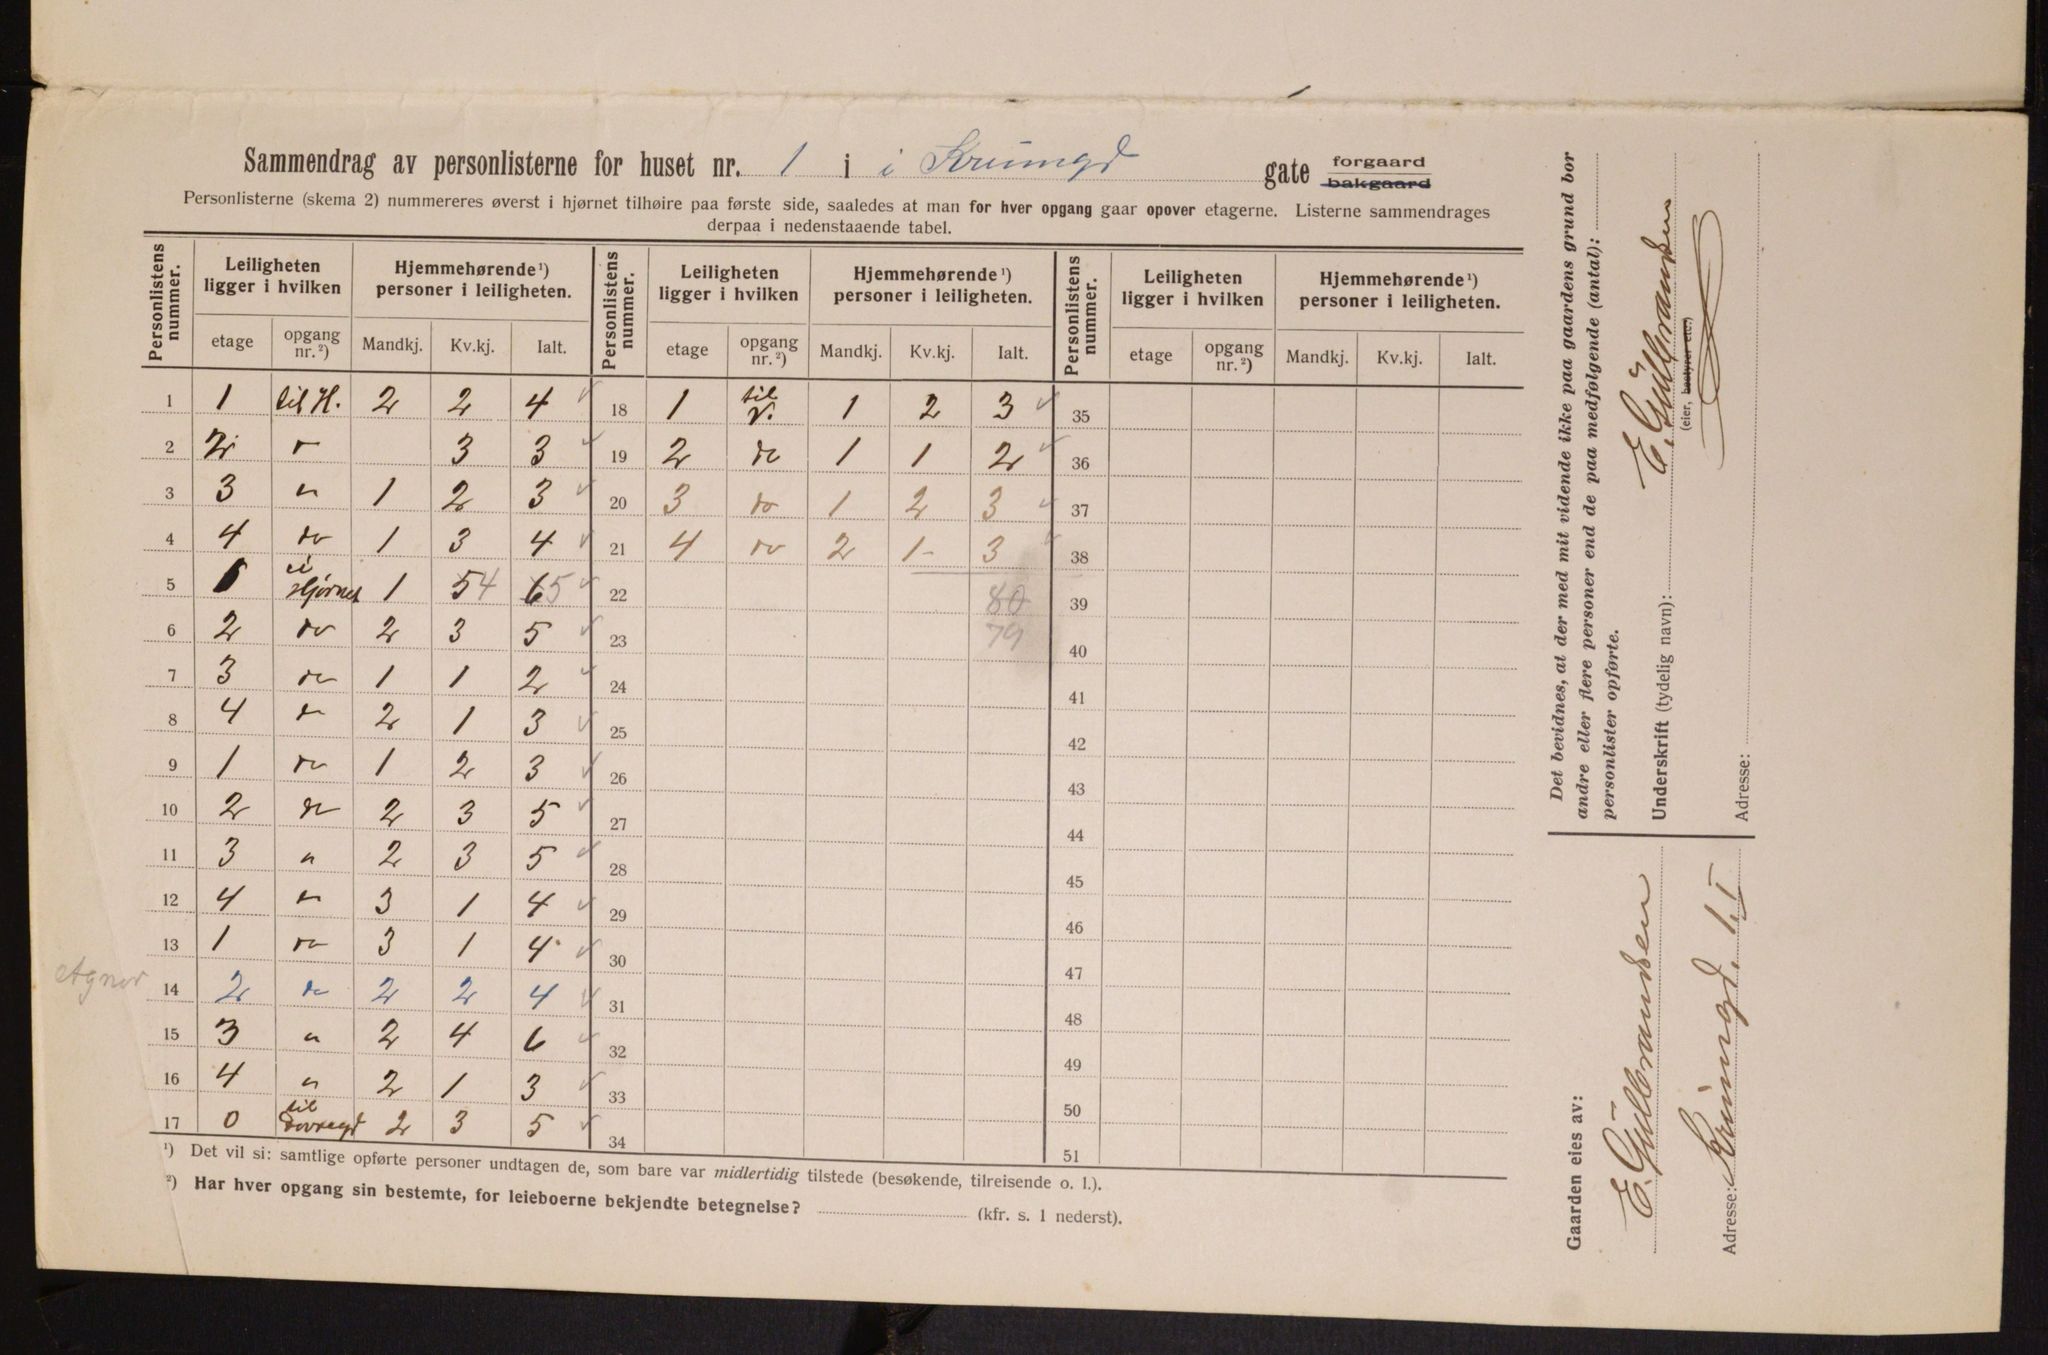 Sammendrag av personlisterne for huset nr. 1 i i Krumgd gate forgaard bakgaard
Personlisterne (skema 2) nummereres øverst i hjørnet tilhøire paa første side, saaledes at man for hver opgang gaar opover etagerne. Listerne sammendrages
derpaa i nedenstaaende tabel.
Personlistens nummer. Leiligheten ligger i hvilken Hjemmehørende¹) personer i leiligheten. Personlistens nummer. Leiligheten ligger i hvilken Hjemmehørende¹) personer i leiligheten. Personlistens nummer. Leiligheten ligger i hvilken Hjemmehørende¹) personer i leiligheten.
etage opgang nr.²) Mandkj. Kv.kj. Ialt. etage opgang nr.²) Mandkj. Kv.kj. Ialt. etage opgang nr.²) Mandkj. Kv.kj. Ialt.
1 1 til H. 2 2 4 18 1 til V. 1 2 3 35
2 2 do 3 3 19 2 do 1 1 2 36
3 3 " 1 2 3 20 3 do 1 2 3 37
4 4 do 1 3 4 21 4 do 2 1 3 38
5 1 i Hjørnet 1 5 4 6 5 22 80 39
6 2 do 2 3 5 23 79 40
7 3 do 1 1 2 24 41
8 4 do 2 1 3 25 42
9 1 do 1 2 3 26 43
10 2 do 2 3 5 27 44
11 3 " 2 3 5 28 45
12 4 " 3 1 4 29 46
13 1 do 3 1 4 30 47
14 2 do 2 2 4 31 48
15 3 " 2 4 6 32 49
16 4 " 2 1 3 33 50
17 0 til Dovregd 2 3 5 34 51
¹) Det vil si: samtlige opførte personer undtagen de, som bare var midlertidig tilstede (besøkende, tilreisende o. l.).
²) Har hver opgang sin bestemte, for leieboerne bekjendte betegnelse? (kfr. s. 1 nederst).
Det bevidnes, at der med mit vidende ikke paa gaardens grund bor
andre eller flere personer end de paa medfølgende (antal):
personlister opførte.
Underskrift (tydelig navn): E. Gülbrandsen
(eier, bestyrer etc.)
Adresse:
Gaarden eies av:
E. Gülbrandsen
Adresse: Krumgd. 1. I